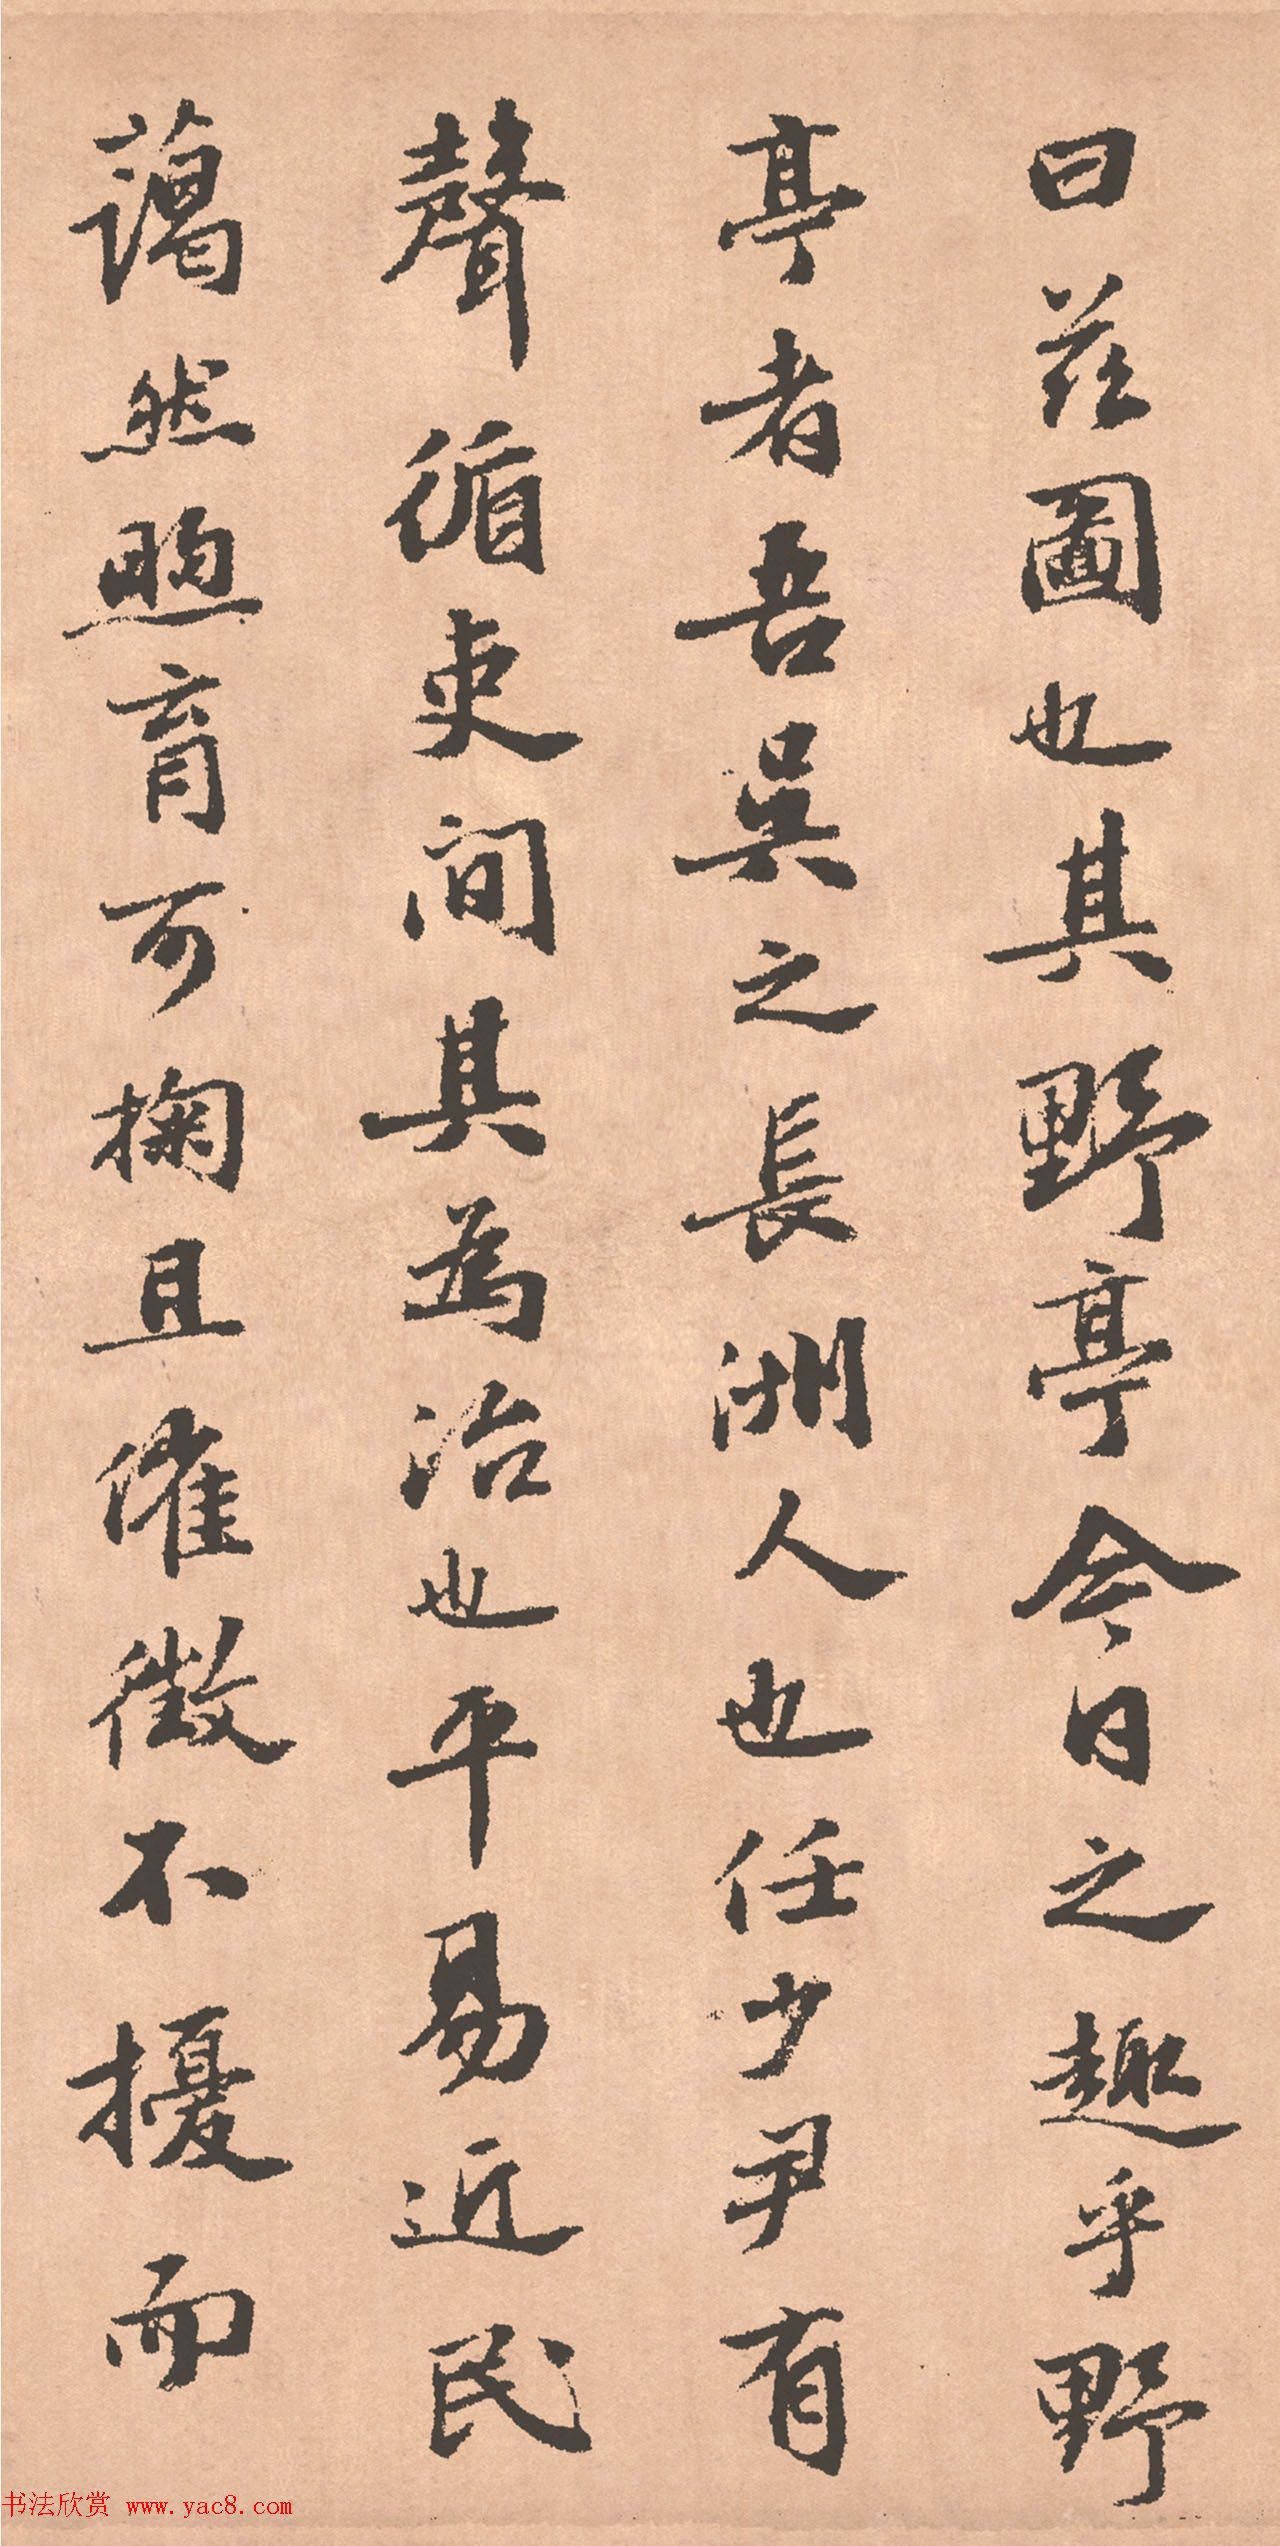 曰茲圖也其野亭今日之趣乎野
亭者吾吳之長洲人也任少尹有
聲循吏間其為治也平易近民
藹然煦育可掬且催徵不擾而
书法欣赏 www.yac8.com